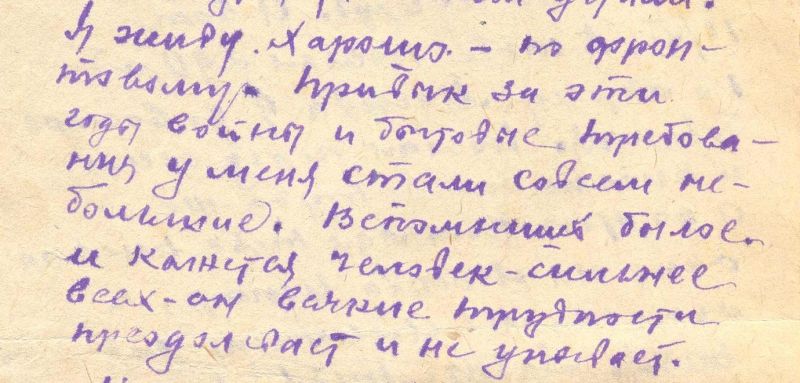 Я живу. Харошо. – по фрон-
товому. Привык за эти
годы войны и бытовые требова-
ния у меня стали совсем не-
большие. Вспомнишь былое.
и кажется человек-сильнее
всех-он всякие трудности
преодолевает и не унывает.